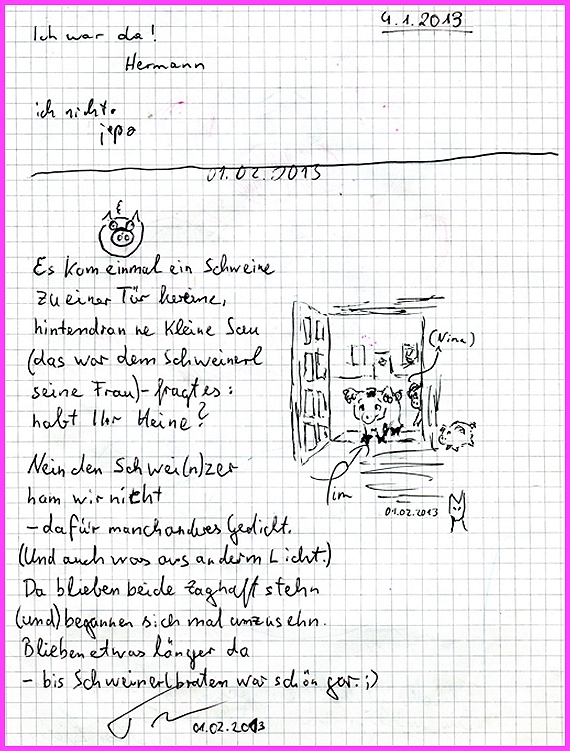 4.1.2013
Ich war da!
Hermann
ich nicht.
jepa
01.02.2013
Es kam einmal ein Schweine
zu einer Tür hereine,
hintendran ne kleine Sau
(das war dem Schweinerl
seine Frau) - fragt es:
habt Ihr Heine?
(Nina)
Tim
01.02.2013
Nein den Schwei(n)zer
ham wir nicht
- dafür manch andres Gedicht.
(Und auch was aus anderm Licht.)
Da blieben beide zaghaft stehn
(und) begannen sich mal umzusehn.
Blieben etwas länger da
- bis Schweinerlbraten war schön gar. ;)
01.02.2013